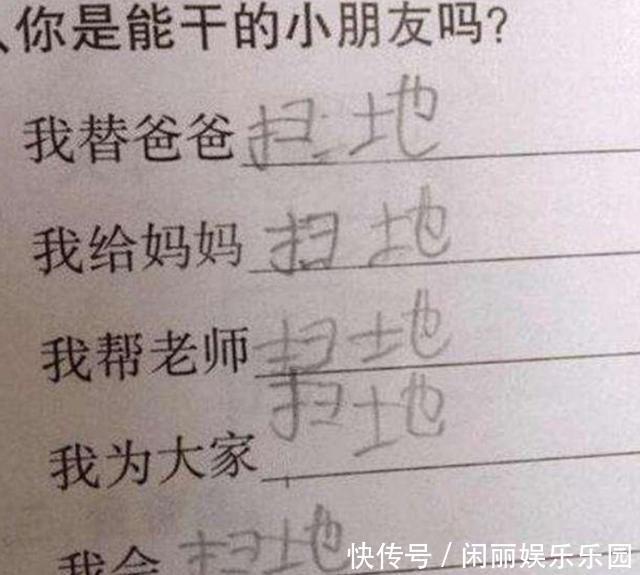 、你是能干的小朋友吗?
我替爸爸扫地
我给妈妈扫地
我帮老师扫地
我为大家扫地
我会扫地
快传号/闲丽娱乐乐园